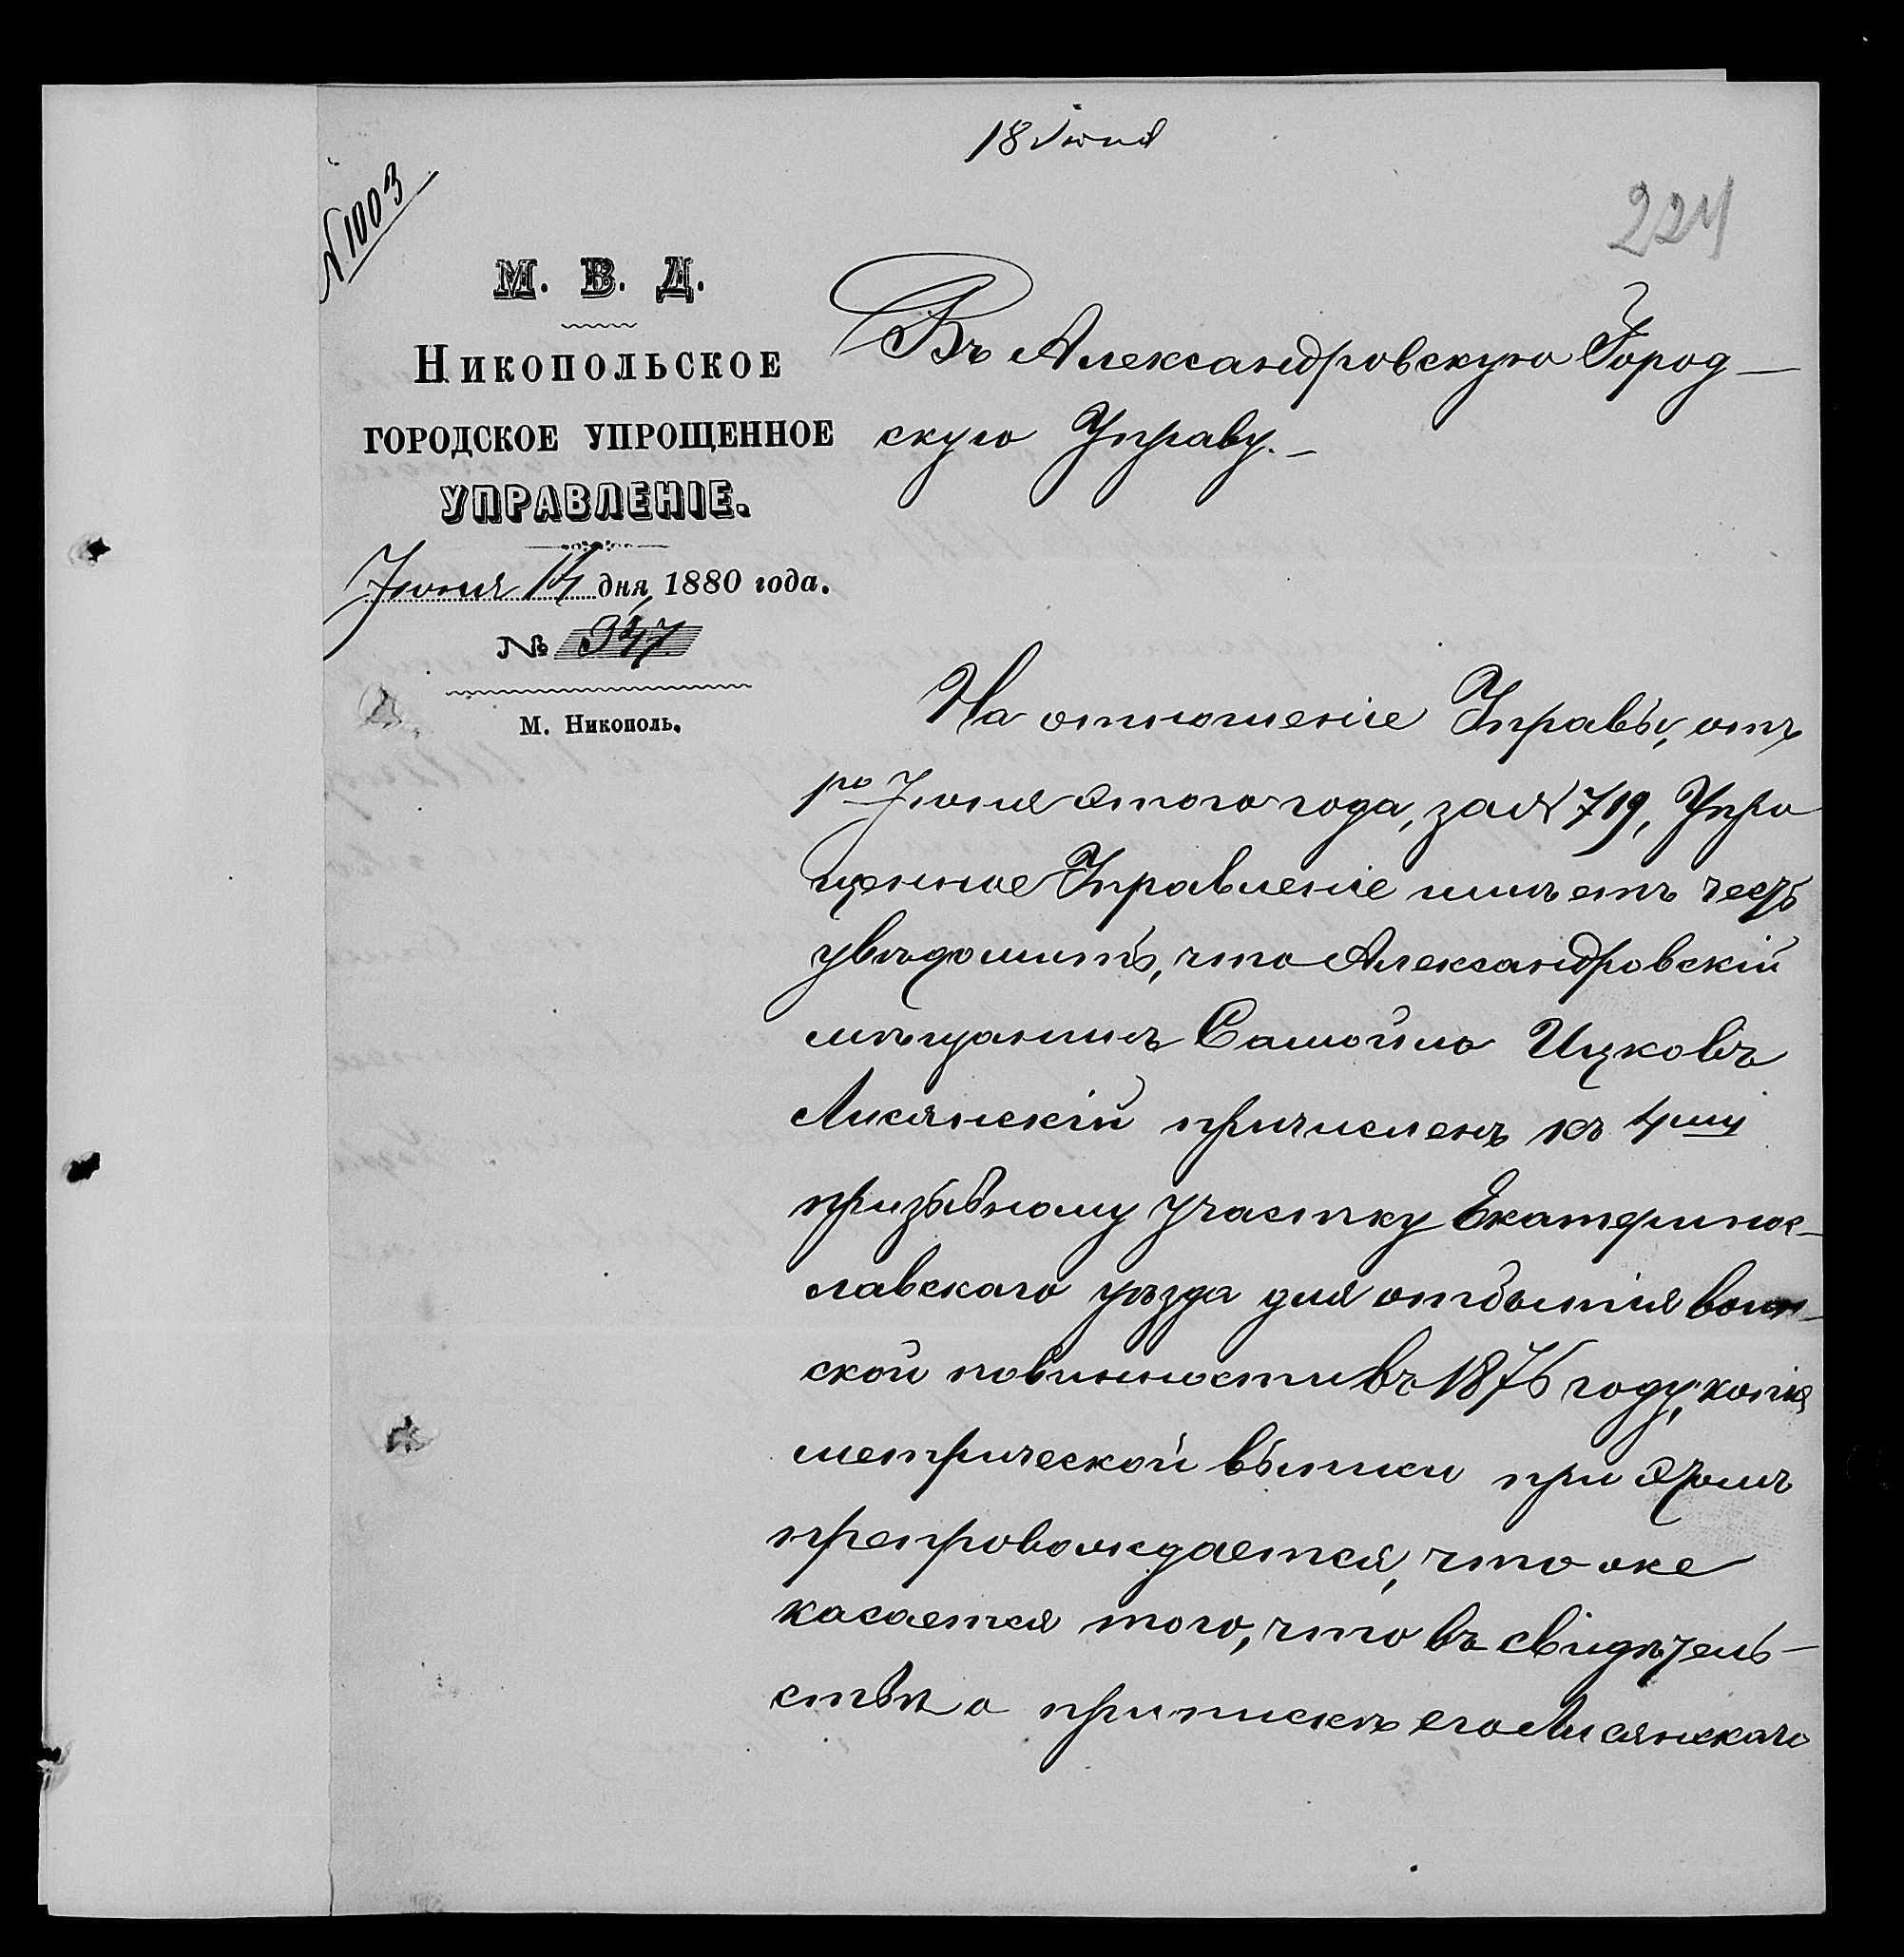 18 Июня
N 1003
224
М. В. Д.
Никопольское
городское упрощенное
управленіе.
Іюня 14 дня 1880 года.
№ 347
М. Никополь.
Въ Александровскую Город-
скую Управу.-
На отношеніе Управы, отъ
1го Іюня этого года, за N 719, Упро
щенное Управленіе имѣетъ честь
увѣдомить, что Александровскій
мѣщанинъ Самойло Ицковъ
Лисянскій причисленъ къ 4му
призывному участку Екатеринос-
лавскаго уѣзда для отбытія воин-
ской повинности въ 1876 году, копія
метрической выписи при этомъ
препровождается, что же
касается того, что въ свидѣтель-
ствѣ о припискѣ его Лисянскаго